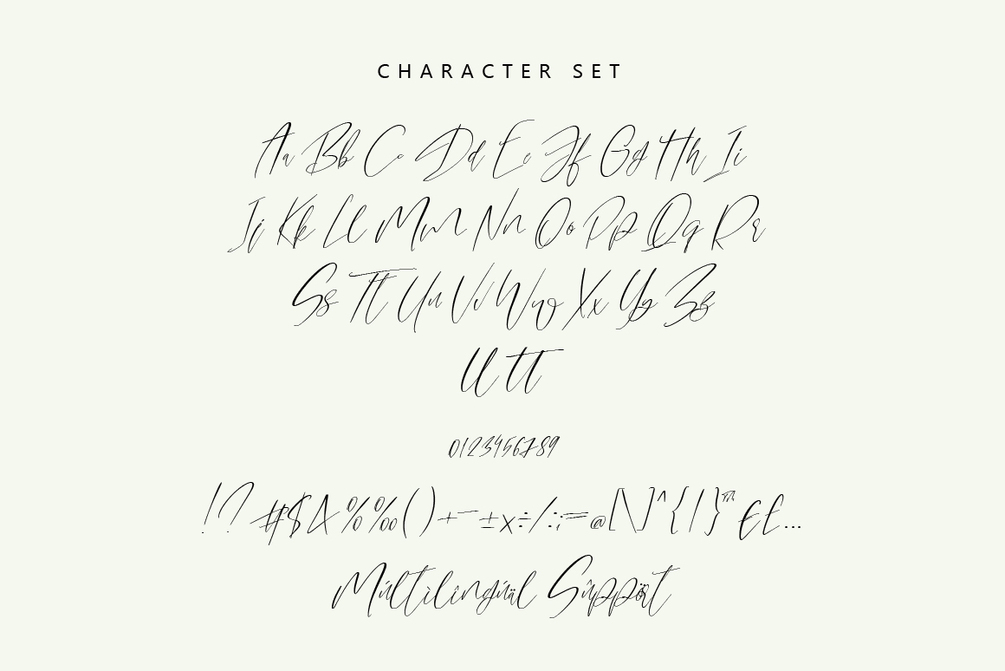 CHARACTER SET
Aa Bb Cc Dd Ee Ff Gg Hh Ii
Jj Kk Ll Mm Nn Oo Pp Qq Rr
Ss Tt Uu Vv Ww Xx Yy Zz
ll tt
0123456789
!? #$&%‰()+−±×÷/:;=@[\]^{|}™€£...
Múltìlîngúäl Sûppört